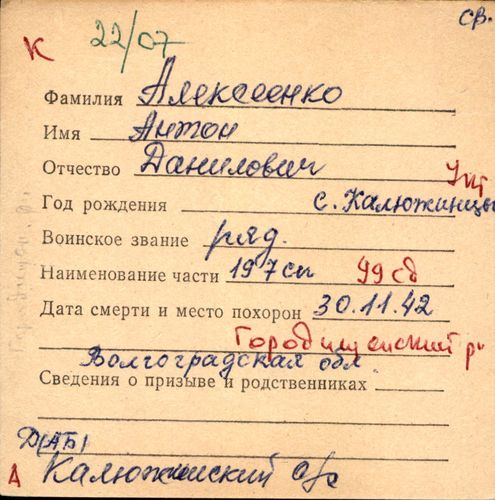 св.
К 22/07
Фамилия Алексеенко
Имя Антон
Отчество Данилович
Год рождения с. Калюжинцы
Воинское звание ряд.
Наименование части 197 сп 99 сд
Дата смерти и место похорон 30.11.42
Городищенский р
Волгоградская обл.
Сведения о призыве и родственниках
Д(АБ)
А Калюжинский с/с